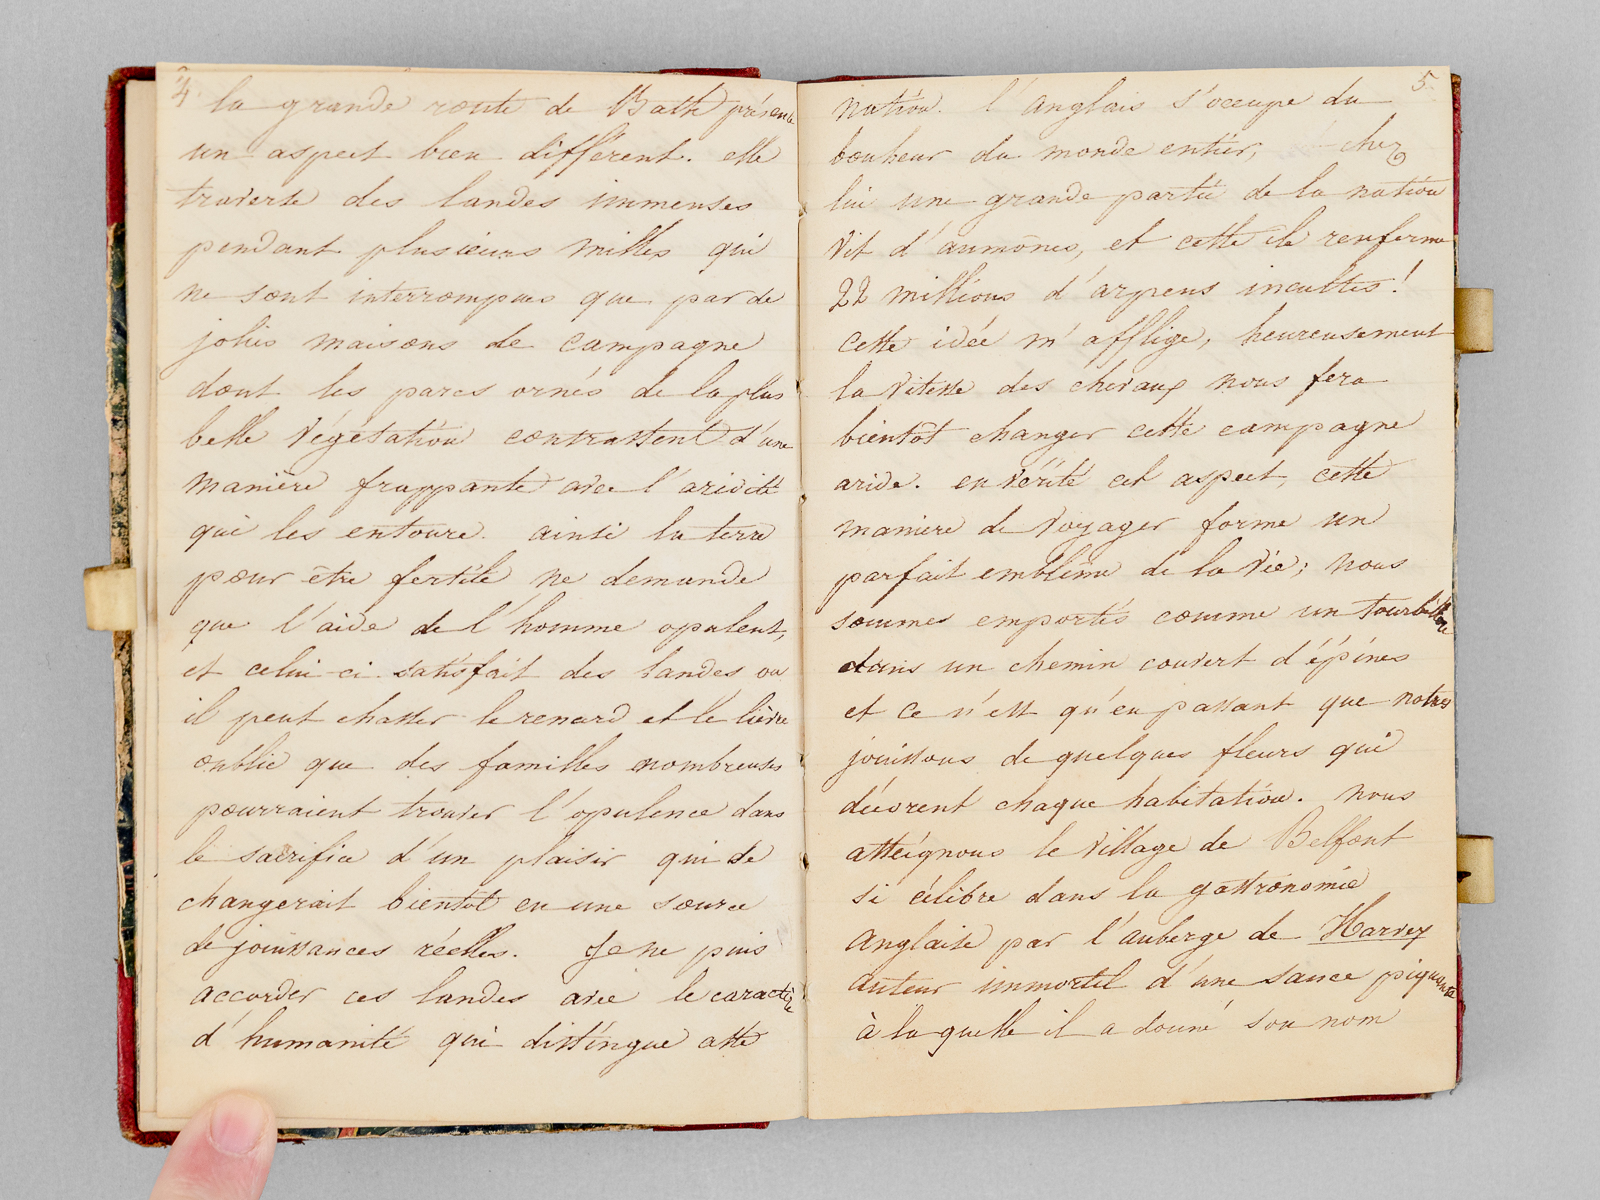 4
la grande route de Bath présente
un aspect bien différent. elle
traverse des landes immenses
pendant plusieurs milles qui
ne sont interrompues que par de
jolies maisons de campagne
dont les parcs ornés de la plus
belle végétation contrastent d'une
manière frappante avec l'aridité
qui les entoure. ainsi la terre
pour être fertile ne demande
que l'aide de l'homme opulent,
et celui-ci satisfait des landes ou
il peut chasser le renard et le lièvre
oublie que des familles nombreuses
pourraient trouver l'opulence dans
le sacrifice d'un plaisir qui se
changerait bientot en une source
de jouissances réelles. Je ne puis
accorder ces landes avec le caractère
d'humanité qui distingue cette
5.
nation. l'anglais s'occupe du
bonheur du monde entier; chez
lui une grande partie de la nation
vit d'aumônes, et cette ile renferme
22 millions d'arpens incultes!
cette idée m'afflige, heureusement
la vitesse des chevaux nous fera
bientôt changer cette campagne
aride. en vérité cet aspect, cette
maniere de voyager forme un
parfait emblême de la vie; nous
sommes emportés comme un tourbillon
dans un chemin couvert d'épines
et ce n'est qu'en passant que nous
jouissons de quelques fleurs qui
décorent chaque habitation. nous
atteignons le village de Belfont
si célèbre dans la gastronomie
anglaise par l'auberge de Harvey
auteur immortel d'une sauce piquante
à la quelle il a donné son nom